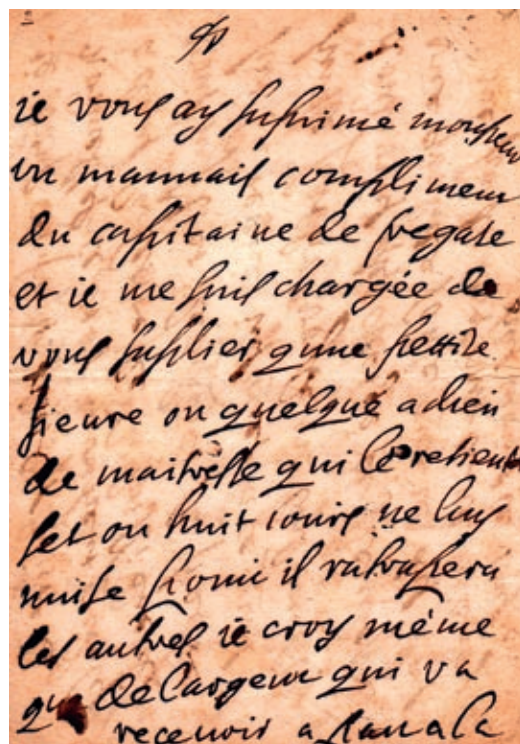 ie vous ay suprimé monsieur
un mauuais complimen
du capitaine de fregate
et ie me suis chargée de
vous suplier qune petitte
fieure ou quelque adieu
de maitresse qui le retient
set ou huit iours ne luy
nuise point il ratrapera
les autres ie croy même
que de largeau qui va
receuoir a